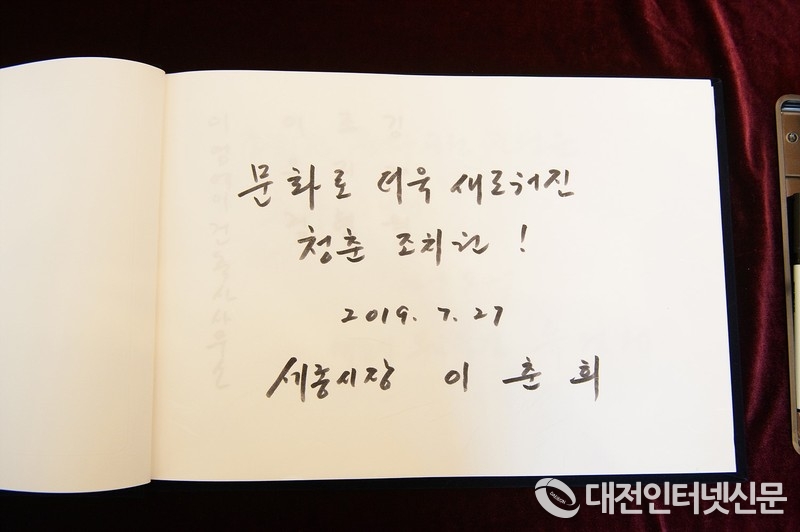 문화로 더욱 새로워진
청춘 조치원 !
2019. 7. 27
세종시장 이 춘 희
대전인터넷신문